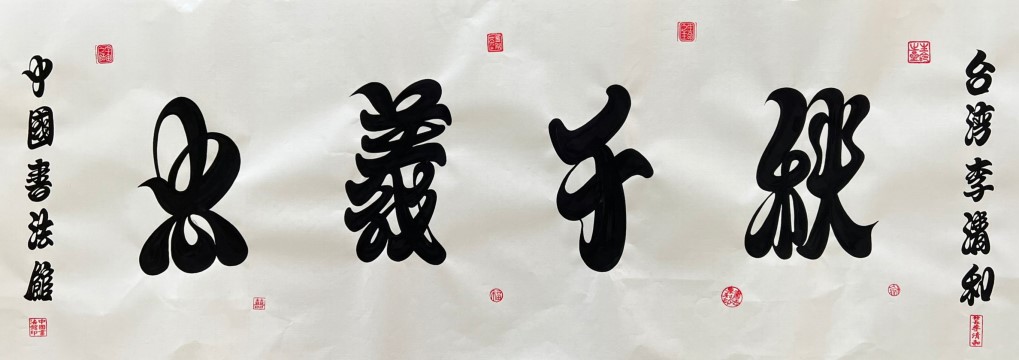 中國書法館
忠義千秋
台湾李清和